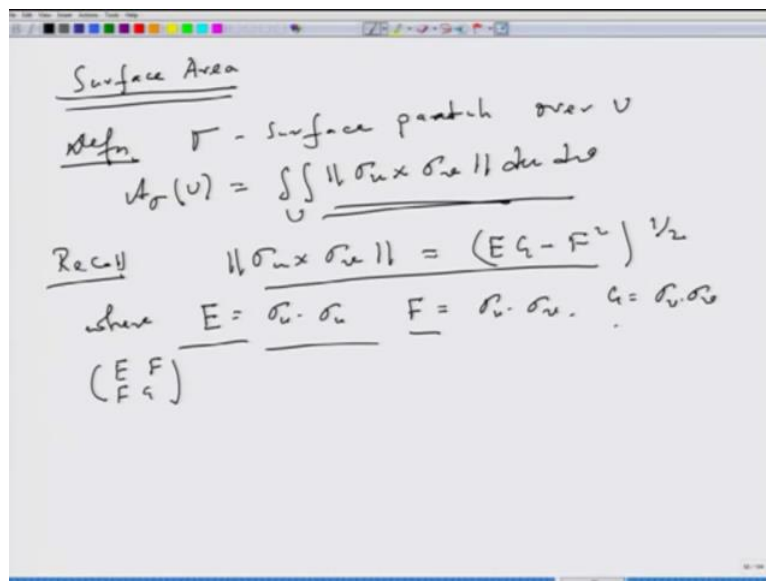 Surface Area
Defn. σ - Surface pantch over U
A_σ(U) = ∬_U ||σ_u × σ_v|| du dv
Recall ||σ_u × σ_v|| = (EG - F²)^{1/2}
where E = σ_u · σ_u F = σ_u · σ_v. G = σ_v · σ_v
(E F
F G)